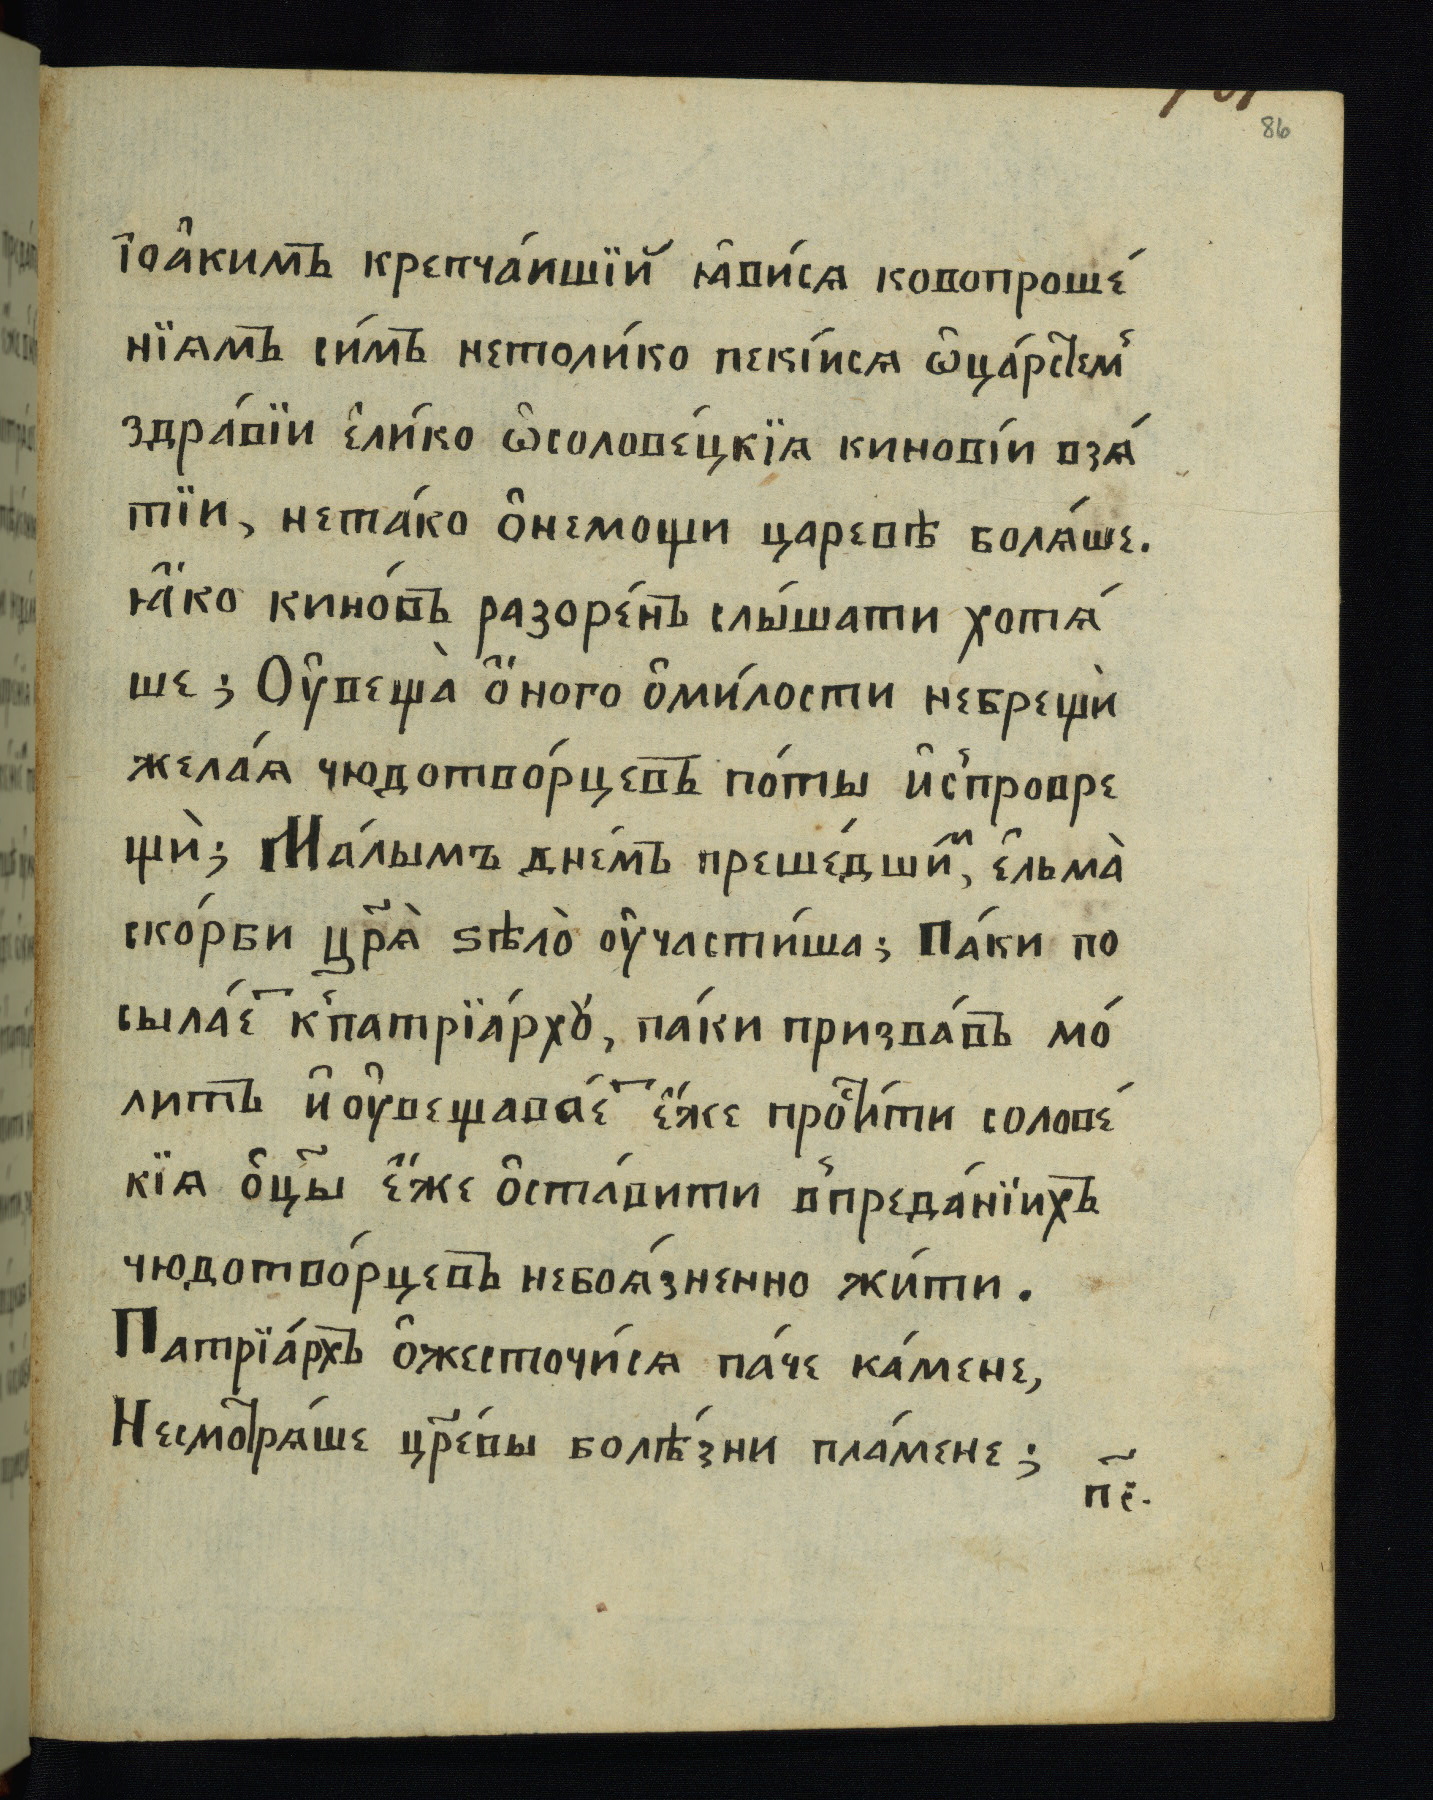 86
І҆оа҆кимъ крепча́ишїй ꙗ҆ви́сѧ ковопроше́
нїѧмъ си́мъ нетоли́ко пекі́исѧ ѡ҆ца́рстем
здра́вїи є҆ли́ко ѡ҆солове́цкїѧ кинові́и взѧ́
тїи, нета́ко о҆немощи царевѣ болѧ́ше.
ꙗ҆́ко кино́въ разоре́нъ слы́шати хотѧ́
ше; Оу҆веща̀ о҆́ного о҆ми́лости небрещѝ
жела́ѧ чюдотво́рцевъ по́ты и҆спровре
щѝ; Ма́лымъ дне́мъ преше́дшим, є҆льма̀
ско́рби цр҃ѧ̀ ѕѣло̀ оу҆части́ша; Па́ки по
сыла́ет к̾патрїа́рхꙋ, па́ки призва́въ мо́
литъ и҆оу҆вещава́ет є҆́же прости́ти солове́
кїѧ о҆ц҃ы є҆́же о҆ста́вити в̾преда́нїихъ
чюдотво́рцевъ небоѧ́зненно жи́ти.
Патрїа́рхъ о҆жесточи́сѧ па́че ка́мене,
Несмотрѧ́ше цр҃е́вы болѣ́зни пла́мене;
п҃є.